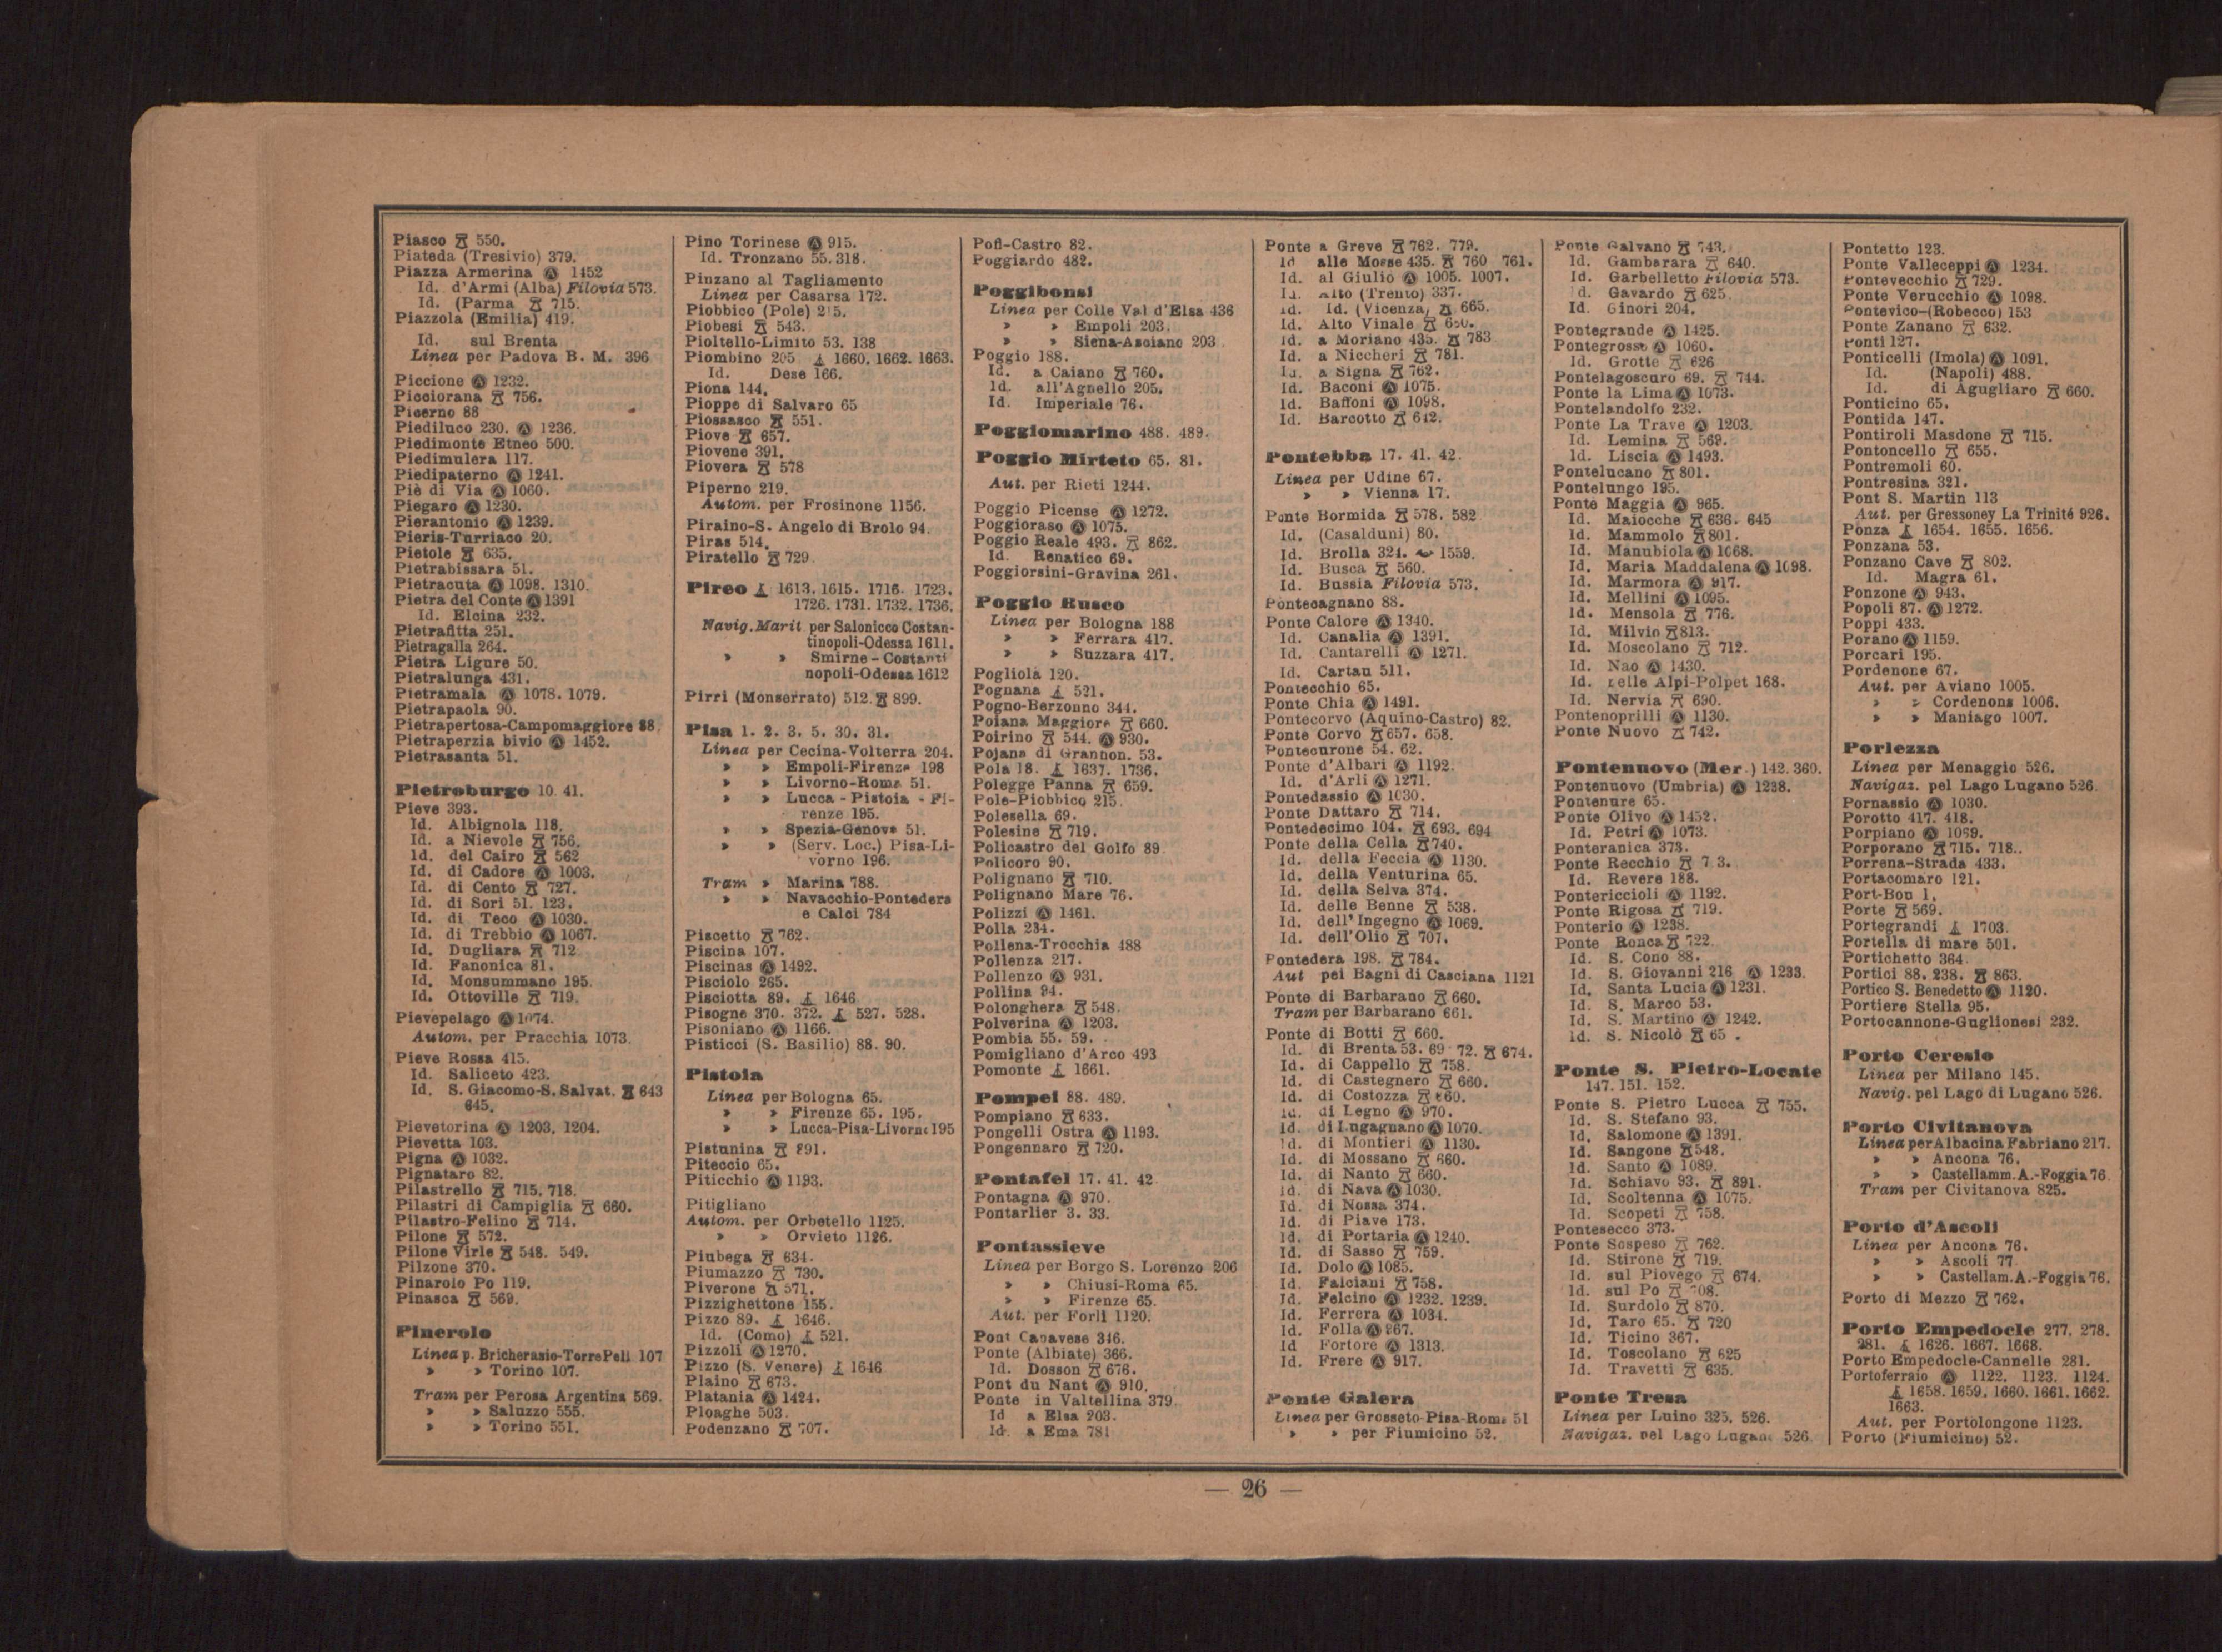 Piasco 550.
Piateda (Tresivio) 379.
Piazza Armerina Ⓐ 1452
Id. d'Armi (Alba) Filovia 573.
Id. (Parma 715.
Piazzola (Emilia) 419.
Id. sul Brenta
Linea per Padova B. M. 396
Piccione Ⓐ 1232.
Picciorana 756.
Picerno 88
Piediluco 230. Ⓐ 1236.
Piedimonte Etneo 500.
Piedimulera 117.
Piedipaterno Ⓐ 1241.
Piè di Via Ⓐ 1060.
Piegaro Ⓐ 1230.
Pierantonio Ⓐ 1239.
Pieris-Turriaco 20.
Pietole 635.
Pietrabissara 51.
Pietracuta Ⓐ 1098. 1310.
Pietra del Conte Ⓐ 1391
Id. Elcina 232.
Pietrafitta 251.
Pietragalla 264.
Pietra Ligure 50.
Pietralunga 431.
Pietramala Ⓐ 1078. 1079.
Pietrapaola 90.
Pietrapertosa-Campomaggiore 88.
Pietraperzia bivio Ⓐ 1452.
Pietrasanta 51.
Pietroburgo 10. 41.
Pieve 393.
Id. Albignola 118.
Id. a Nievole 756.
Id. del Cairo 562
Id. di Cadore Ⓐ 1003.
Id. di Cento 727.
Id. di Sori 51. 123.
Id. di Teco Ⓐ 1030.
Id. di Trebbio Ⓐ 1067.
Id. Dugliara 712
Id. Fanonica 81.
Id. Monsummano 195.
Id. Ottoville 719.
Pievepelago Ⓐ 1074.
Autom. per Pracchia 1073.
Pieve Rossa 415.
Id. Saliceto 423.
Id. S. Giacomo-S. Salvat. 643
645.
Pievetorina Ⓐ 1203. 1204.
Pievetta 103.
Pigna Ⓐ 1032.
Pignataro 82.
Pilastrello 715. 718.
Pilastri di Campiglia 660.
Pilastro-Felino 714.
Pilone 572.
Pilone Virle 548. 549.
Pilzone 370.
Pinarolo Po 119.
Pinasca 569.
Pinerolo
Linea p. Bricherasio-Torre Peli 107
» » Torino 107.
Tram per Perosa Argentina 569.
» » Saluzzo 555.
» » Torino 551.
Pino Torinese Ⓐ 915.
Id. Tronzano 55. 318.
Pinzano al Tagliamento
Linea per Casarsa 172.
Piobbico (Pole) 215.
Piobesi 543.
Pioltello-Limito 53. 138
Piombino 205 1660. 1662. 1663.
Id. Dese 166.
Piona 144.
Pioppe di Salvaro 65
Piossasco 551.
Piove 657.
Piovene 391.
Piovera 578
Piperno 219.
Autom. per Frosinone 1156.
Piraino-S. Angelo di Brolo 94.
Piras 514.
Piratello 729
Pireo 1613. 1615. 1716. 1723.
1726. 1731. 1732. 1736.
Navig. Marit per Salonicco Costan-
tinopoli-Odessa 1611.
» » Smirne-Costanti
nopoli-Odessa 1612
Pirri (Monserrato) 512. 899.
Pisa 1. 2. 3. 5. 30. 31.
Linea per Cecina-Volterra 204.
» » Empoli-Firenze 198
» » Livorno-Roma 51.
» » Lucca-Pistoia-Fi-
renze 195.
» » Spezia-Genova 51.
» » (Serv. Loc.) Pisa-Li-
vorno 196.
Tram » Marina 788.
» » Navacchio-Pontedera
e Calci 784
Piscetto 762.
Piscina 107.
Piscinas Ⓐ 1492.
Pisciolo 265.
Pisciotta 89. 1646
Pisogne 370. 372. 527. 528.
Pisoniano Ⓐ 1166.
Pisticci (S. Basilio) 88. 90.
Pistoia
Linea per Bologna 65.
» » Firenze 65. 195.
» » Lucca-Pisa-Livorno 195
Pistunina 891.
Piteccio 65.
Piticchio Ⓐ 1193.
Pitigliano
Autom. per Orbetello 1125.
» » Orvieto 1126.
Piubega 634.
Piumazzo 730.
Piverone 571.
Pizzighettone 155.
Pizzo 89. 1646.
Id. (Como) 521.
Pizzoli Ⓐ 1270.
Pizzo (S. Venere) 1646
Plaino 673.
Platania Ⓐ 1424.
Ploaghe 503.
Podenzano 707.
Pofi-Castro 82.
Poggiardo 482.
Poggibonsi
Linea per Colle Val d'Elsa 436
» » Empoli 203.
» » Siena-Asciano 203
Poggio 188.
Id. a Caiano 760.
Id. all'Agnello 205.
Id. Imperiale 76.
Poggiomarino 488. 489.
Poggio Mirteto 65. 81.
Aut. per Rieti 1244.
Poggio Picense Ⓐ 1272.
Poggioraso Ⓐ 1075.
Poggio Reale 493. 862.
Id. Renatico 69.
Poggiorsini-Gravina 261.
Poggio Rusco
Linea per Bologna 188
» » Ferrara 417.
» » Suzzara 417.
Pogliola 120.
Pognana 521.
Pogno-Berzonno 344.
Poiana Maggiore 660.
Poirino 544. Ⓐ 930.
Pojana di Grannon. 53.
Pola 18. 1637. 1736.
Polegge Panna 659.
Pole-Piobbico 215.
Polesella 69.
Polesine 719.
Policastro del Golfo 89
Policoro 90.
Polignano 710.
Polignano Mare 76.
Polizzi Ⓐ 1461.
Polla 234.
Pollena-Trocchia 488
Pollenza 217.
Pollenzo Ⓐ 931.
Pollina 94.
Polonghera 548
Polverina Ⓐ 1203.
Pombia 55. 59.
Pomigliano d'Arco 493
Pomonte 1661.
Pompei 88. 489.
Pompiano 633.
Pongelli Ostra Ⓐ 1193.
Pongennaro 720.
Pontafel 17. 41. 42
Pontagna Ⓐ 970.
Pontarlier 3. 33.
Pontassieve
Linea per Borgo S. Lorenzo 206
» » Chiusi-Roma 65.
» » Firenze 65.
Aut. per Forlì 1120.
Pont Canavese 346.
Ponte (Albiate) 366.
Id. Dosson 676.
Pont du Nant Ⓐ 910.
Ponte in Valtellina 379.
Id a Elsa 203.
Id. a Ema 781
Ponte a Greve 762. 779.
Id alle Mosse 435. 760 761.
Id. al Giulio Ⓐ 1005. 1007.
Alto (Trento) 337.
Id. Id. (Vicenza, 665.
Id. Alto Vinale
Id. a Moriano 435. 783
Id. a Niccheri 781.
a Signa 762.
Id. Baconi Ⓐ 1075.
Id. Baffoni Ⓐ 1098.
Id. Barcotto 642.
Pontebba 17. 41. 42.
Linea per Udine 67.
» » Vienna 17.
Ponte Bormida 578. 582
Id. (Casalduni) 80.
Id. Brolla 324. 1559.
Id. Busca 560.
Id. Bussia Filovia 573.
Pontecagnano 88.
Ponte Calore Ⓐ 1340.
Id. Canalia Ⓐ 1391.
Id. Cantarelli Ⓐ 1271.
Id. Cartau 511.
Pontecchio 65.
Ponte Chia Ⓐ 1491.
Pontecorvo (Aquino-Castro) 82.
Ponte Corvo 657. 658.
Pontecurone 54. 62.
Ponte d'Albari Ⓐ 1192.
Id. d'Arli Ⓐ 1271.
Pontedassio Ⓐ 1030.
Ponte Dattaro 714.
Pontedecimo 104. 693. 694
Ponte della Cella 740.
Id. della Feccia Ⓐ 1130.
Id. della Venturina 65.
Id. della Selva 374.
Id. delle Benne 538.
Id. dell'Ingegno Ⓐ 1069.
Id. dell'Olio 707.
Pontedera 198. 784.
Aut pei Bagni di Casciana 1121
Ponte di Barbarano 660.
Tram per Barbarano 661.
Ponte di Botti 660.
Id. di Brenta 53. 69 72. 674.
Id. di Cappello 758.
Id. di Castegnero 660.
Id. di Costozza 660.
Id. di Legno Ⓐ 970.
Id. di Lugagnano Ⓐ 1070.
Id. di Montieri Ⓐ 1130.
Id. di Mossano 660.
Id. di Nanto 660.
Id. di Nava Ⓐ 1030.
Id. di Nossa 374.
Id. di Piave 173.
Id. di Portaria Ⓐ 1240.
Id. di Sasso 759.
Id. Dolo Ⓐ 1085.
Id. Falciani 758.
Id. Felcino Ⓐ 1232. 1239.
Id. Ferrera Ⓐ 1034.
Id. Folla Ⓐ 967.
Id Fortore Ⓐ 1313.
Id. Frere Ⓐ 917.
Ponte Galera
Linea per Grosseto-Pisa-Roma 51
» » per Fiumicino 52.
Ponte Galvano 743.
Id. Gambarara 640.
Id. Garbelletto Filovia 573.
Id. Gavardo 625.
Id. Ginori 204.
Pontegrande Ⓐ 1425.
Pontegrosso Ⓐ 1060.
Id. Grotte 626
Pontelagoscuro 69. 744.
Ponte la Lima Ⓐ 1073.
Pontelandolfo 232.
Ponte La Trave Ⓐ 1203.
Id. Lemina 569.
Id. Liscia Ⓐ 1493.
Pontelucano 801.
Pontelungo 195.
Ponte Maggia Ⓐ 965.
Id. Maiocche 636. 645
Id. Mammolo 801.
Id. Manubiola Ⓐ 1068.
Id. Maria Maddalena Ⓐ 1098.
Id. Marmora Ⓐ 917.
Id. Mellini Ⓐ 1095.
Id. Mensola 776.
Id. Milvio 813.
Id. Moscolano 712.
Id. Nao Ⓐ 1430.
Id. nelle Alpi-Polpet 168.
Id. Nervia 690.
Pontenoprilli Ⓐ 1130.
Ponte Nuovo 742.
Pontenuovo (Mer.) 142. 360.
Pontenuovo (Umbria) Ⓐ 1238.
Pontenure 65.
Ponte Olivo Ⓐ 1452.
Id. Petri Ⓐ 1073.
Ponteranica 373.
Ponte Recchio
Id. Revere 188.
Pontericcioli Ⓐ 1192.
Ponte Rigosa 719.
Ponterio Ⓐ 1238.
Ponte Ronca 722.
Id. S. Cono 88.
Id. S. Giovanni 216 Ⓐ 1233.
Id. Santa Lucia Ⓐ 1231.
Id. S. Marco 53.
Id. S. Martino Ⓐ 1242.
Id. S. Nicolò
Ponte S. Pietro-Locate
147. 151. 152.
Ponte S. Pietro Lucca 755.
Id. S. Stefano 93.
Id. Salomone Ⓐ 1391.
Id. Sangone 548.
Id. Santo Ⓐ 1089.
Id. Schiavo 93. 891.
Id. Scoltenna Ⓐ 1075.
Id. Scopeti 758.
Pontesecco 373.
Ponte Sospeso 762.
Id. Stirone 719.
Id. sul Piovego 674.
Id. sul Po 708.
Id. Surdolo 870.
Id. Taro 65. 720
Id. Ticino 367.
Id. Toscolano 625
Id. Travetti 635.
Ponte Tresa
Linea per Luino 325. 526.
Navigaz. pel Lago Lugano 526.
Pontetto 123.
Ponte Valleceppi Ⓐ 1234.
Pontevecchio 729.
Ponte Verucchio Ⓐ 1098.
Pontevico-(Robecco) 153
Ponte Zanano 632.
Ponti 127.
Ponticelli (Imola) Ⓐ 1091.
Id. (Napoli) 488.
Id. di Agugliaro 660.
Ponticino 65.
Pontida 147.
Pontiroli Masdone 715.
Pontoncello 655.
Pontremoli 60.
Pontresina 321.
Pont S. Martin 113
Aut. per Gressoney La Trinité 926.
Ponza 1654. 1655. 1656.
Ponzana 53.
Ponzano Cave 802.
Id. Magra 61.
Ponzone Ⓐ 943.
Popoli 87. Ⓐ 1272.
Poppi 433.
Porano Ⓐ 1159.
Porcari 195.
Pordenone 67.
Aut. per Aviano 1005.
» » Cordenons 1006.
» » Maniago 1007.
Porlezza
Linea per Menaggio 526.
Navigaz. pel Lago Lugano 526.
Pornassio Ⓐ 1030.
Porotto 417. 418.
Porpiano Ⓐ 1069.
Porporano 715. 718..
Porrena-Strada 433.
Portacomaro 121.
Port-Bou 1.
Porte 569.
Portegrandi 1703.
Portella di mare 501.
Portichetto 364.
Portici 88. 238. 863.
Portico S. Benedetto Ⓐ 1120.
Portiere Stella 95.
Portocannone-Guglionesi 232.
Porto Ceresio
Linea per Milano 145.
Navig. pel Lago di Lugano 526.
Porto Civitanova
Linea per Albacina Fabriano 217.
» » Ancona 76.
» » Castellamm. A.-Foggia 76.
Tram per Civitanova 825.
Porto d'Ascoli
Linea per Ancona 76.
» » Ascoli 77
» » Castellam. A.-Foggia 76.
Porto di Mezzo 762.
Porto Empedocle 277. 278.
281. 1626. 1667. 1668.
Porto Empedocle-Cannelle 281.
Portoferraio Ⓐ 1122. 1123. 1124.
1658. 1659. 1660. 1661. 1662.
1663.
Aut. per Portolongone 1123.
Porto (Fiumicino) 52.
— 26 —